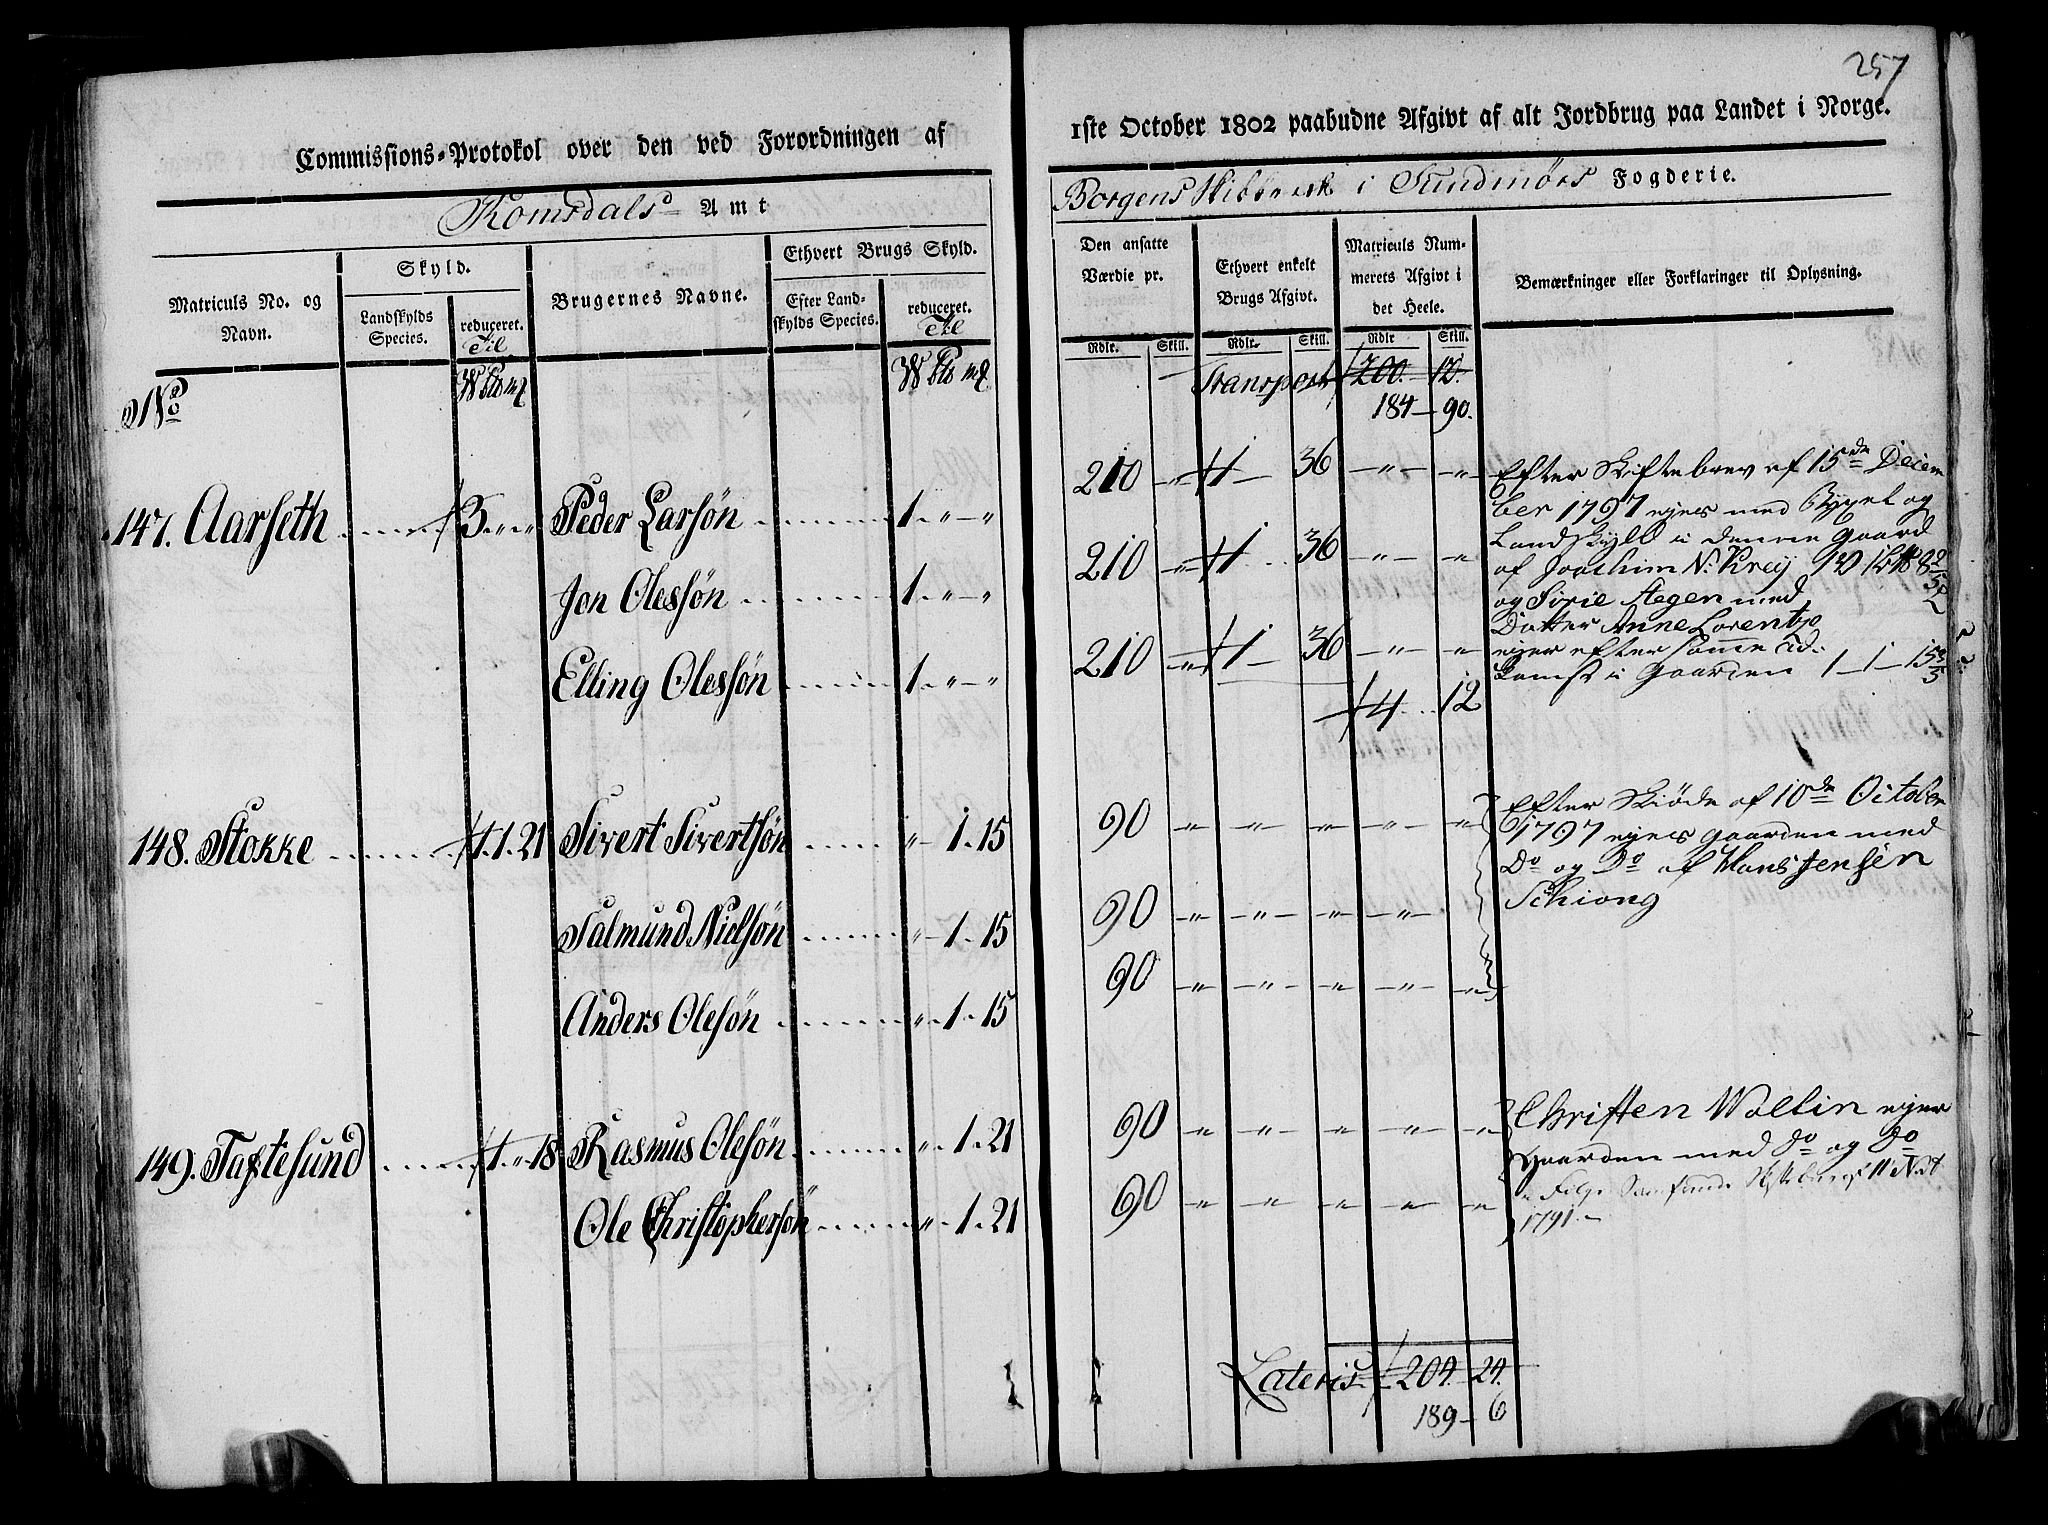 257
Commissions-Protokol over den ved Forordningen af
1ste October 1802 paabudne Afgivt af alt Jordbrug paa Landet i Norge.
Romsdals Amt
Borgens Skibbrede i Sundmørs Fogderie.
Matriculs No. og Navn.
Skyld.
Landskylds Species.
reduceret. Til
Brugernes Navne.
Ethvert Brugs Skyld.
Efter Landskylds Species.
reduceret. Til
Den ansatte Værdie pr.
Ethvert enkelt Brugs Afgivt.
Matriculs Nummerets Afgivt i det Heele.
Bemærkninger eller Forklaringer til Oplysning.
Rdlr. Skill. Rdlr. Skill. Rdlr Skill.
No
W Pd mk W Pd mk
Transport 200. 12.
184 — 90.
147. Aarseth 3 „ „ Peder Larsøn 1 „ „ 210 „ 1 36 „ „
Jon Olessøn 1 „ „ 210 „ 1 36 „ „
Elling Olessøn 1 „ „ 210 „ 1 36 „ „
4 12
Efter Skiftebrev af 15de Decem
ber 1797 ejes med Bygsel og
Landskyld i denne Gaard
af Joachim N. Krey
og Sirie Aegen med
Datter Anne Lorentzo
ejer efter samme Ad-
komst i Gaarden 1 — 1 — 15 3/5
148. Stokke 1. 1. 21 Sivert Sivertsøn „ 1. 15 90 „ „ „ „ „
Salmund Nielsøn „ 1. 15 90 „ „ „ „
Anders Olesøn „ 1. 15 90 „ „ „ „ „
Efter Skiøde af 10de October
1797 ejes gaarden med
Do og Do af Hans Jensen
Schiong
149. Taftesund 1. „ 18 Rasmus Olesøn „ 1. 21 90 „ „ „ „ „
Ole Christophersøn „ 1. 21 90 „ „ „ „ „
Christen Wollin ejer
Gaarden med do og do
1791.
Lateris 204. 24.
189 — 6